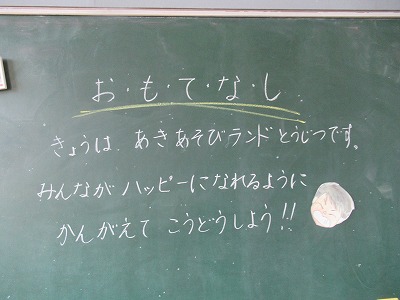 お・も・て・な・し
きょうは、あきあそびランドとうじつです。
みんながハッピーになれるように
かんがえて こうどうしよう!!